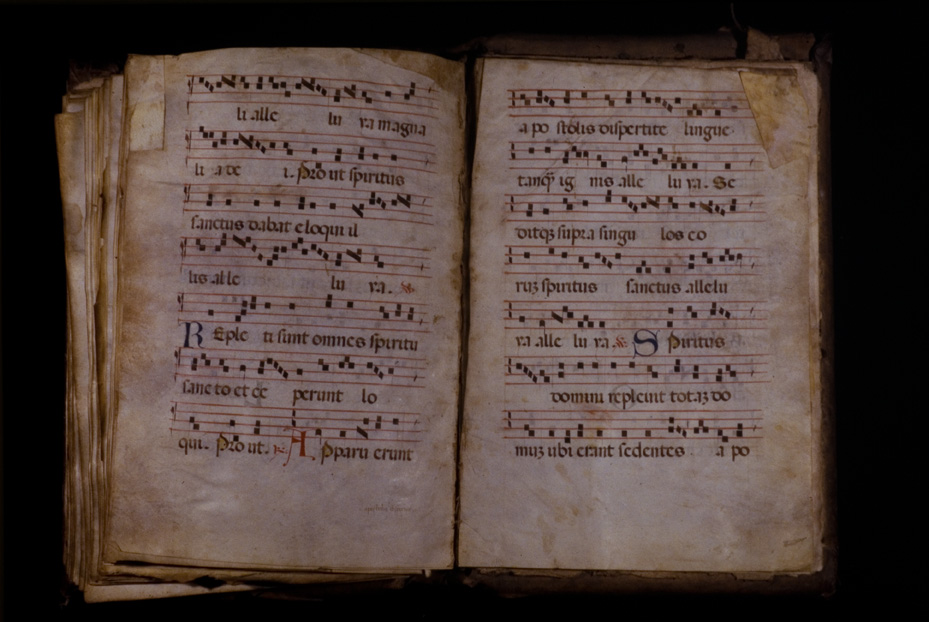 li alle lu ya magna
li a de i. Pro ut spiritus
sanctus dabat eloqui il
lis alle lu ya.
R Eple ti sunt omnes spiritu
sancto et ce perunt lo
qui. Pro ut. A Pparu erunt
a po stolis dispertite lingue
tanq̃ ig nis alle lu ya. Se
ditqȝ supra singu los eo
ruȝ spiritus sanctus allelu
ya alle lu ya S Piritus
domini repleuit totaȝ do
muȝ ubi erant sedentes a po